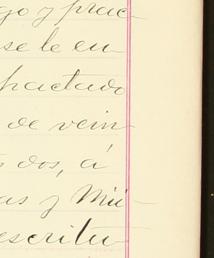 go y prac-
se le en
pactado
de vein
s dos, á
as y Mi-
escritu-